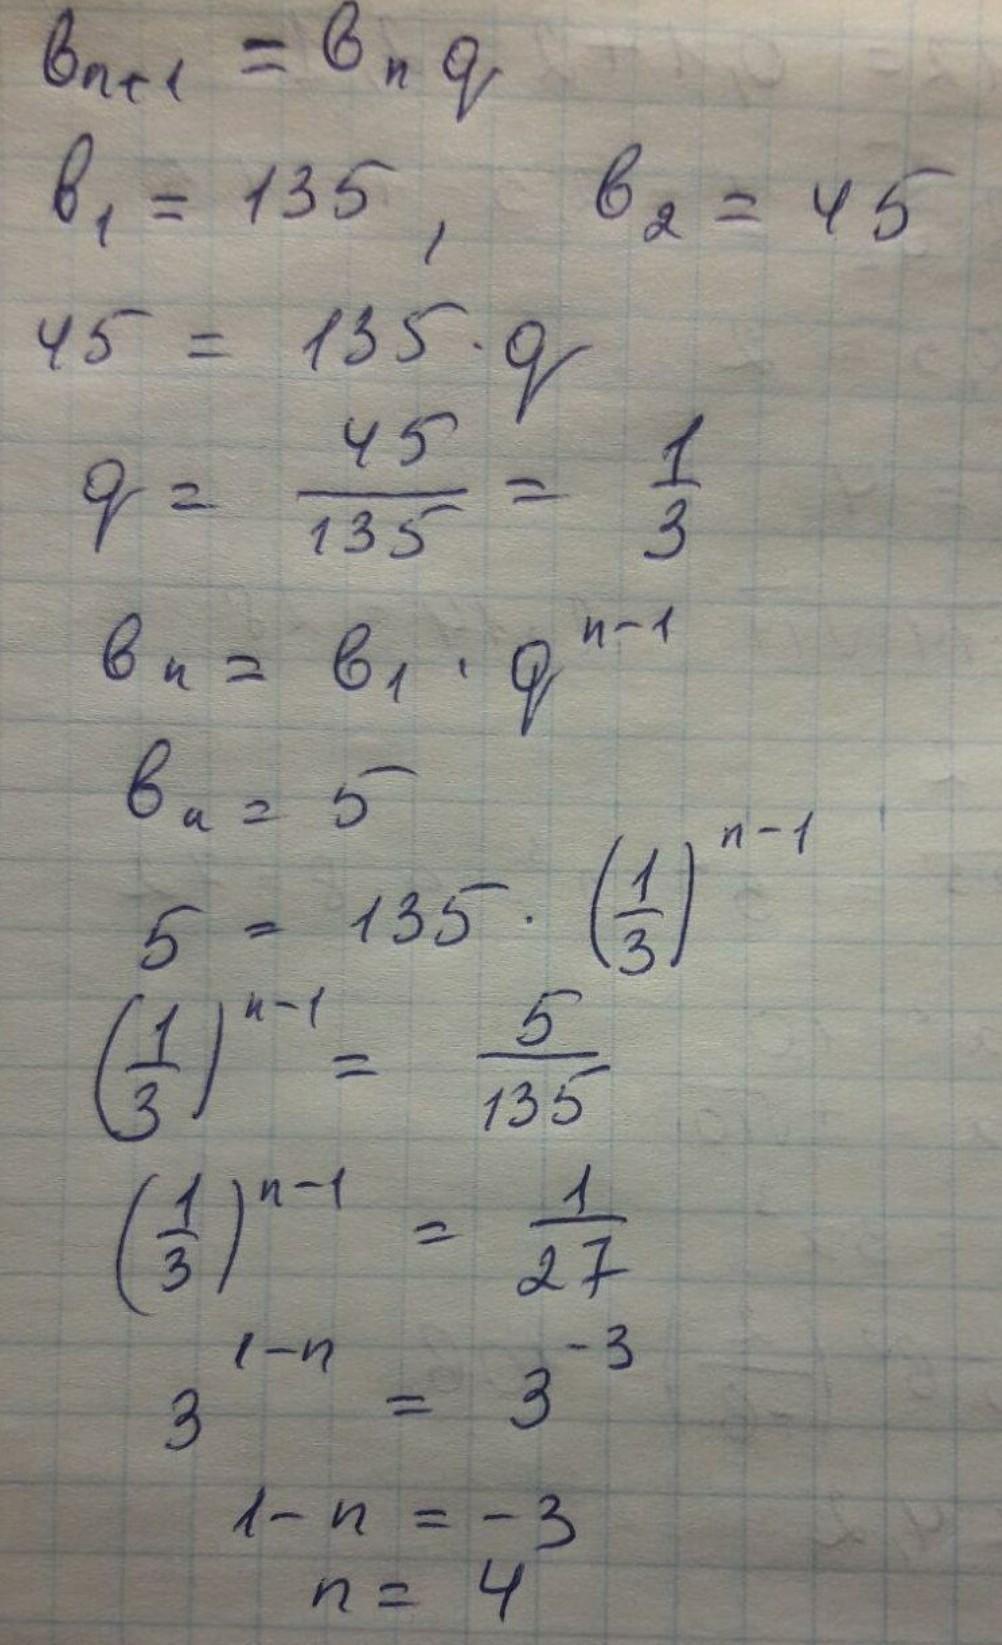 вₙ₊₁ = вₙ q
в₁ = 135, в₂ = 45
45 = 135 · q
q = 45/135 = 1/3
вₙ = в₁ · qⁿ⁻¹
вₙ = 5
5 = 135 · (1/3)ⁿ⁻¹
(1/3)ⁿ⁻¹ = 5/135
(1/3)ⁿ⁻¹ = 1/27
3¹⁻ⁿ = 3⁻³
1-n = -3
n = 4